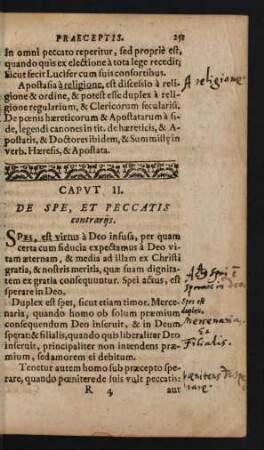 PRAECEPTIS. 251
In omni peccato reperitur, sed propriè est,
quando quis ex electione à tota lege recedit;
sicut fecit Lucifer cum suis consortibus.
Apostasia à religione, est discessio à reli-
gione & ordine, & potest esse duplex à reli-
gione regularium, & Clericorum secularium.
De pœnis hæreticorum & Apostatarum à fi-
de, legendi canones in tit. de hæreticis, & A-
postatis, & Doctores ibidem, & Summistę in
verb. Hæresis, & Apostata.
A religione
CAPVT II.
DE SPE, ET PECCATIS
contrarijs.
SPES, est virtus à Deo infusa, per quam
certa cum fiducia expectamus à Deo vi-
tam æternam, & media ad illam ex Christi
gratia, & nostris meritis, quæ suam dignita-
tem ex gratia consequuntur. Spei actus, est
sperare in Deo.
Duplex est spes, sicut etiam timor. Merce-
naria, quando homo ob solum præmium
consequendum Deo inseruit, & in Deum
sperat: & filialis, quando quis liberaliter Deo
inseruit, principaliter non intendens præ-
mium, sed amorem ei debitum.
Spes est
duplex.
Mercenaria,
Et
Filialis.
Tenetur autem homo sub præcepto spe-
rare, quando pœnitere de suis vult peccatis:
R 4 aut